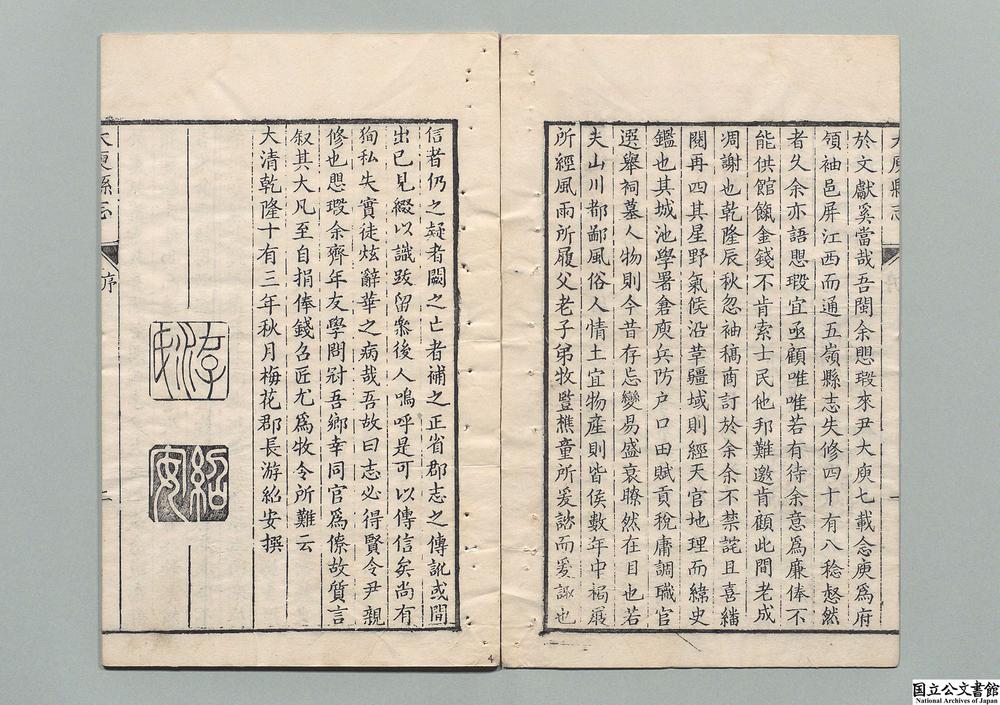 於文獻奚當哉吾閩余思瑕來尹大庾七載念庾爲府
領袖邑屏江西而通五嶺縣志失修四十有八稔惄然
者久余亦語思瑕宜亟顧唯唯若有待余意爲廉俸不
能供館餼金錢不肯索士民他邦難邀肯顧此間老成
凋謝也乾隆辰秋忽袖稿商訂於余余不禁詫且喜繙
閱再四其星野氣候沿革疆域則經天官地理而緯史
鑑也其城池學署倉庾兵防户口田賦貢稅庸調職官
選舉祠墓人物則今昔存忘變易盛衰瞭然在目也若
夫山川都鄙風俗人情土宜物產則皆侯數年中褐屐
所經風雨所履父老子弟牧豎樵童所爰諮而爰諏也
信者仍之疑者闕之亡者補之正省郡志之傳訛或間
出已見綴以識跋留叅後人嗚呼是可以傳信矣尚有
狥私失實徒炫辭華之病哉吾故曰志必得賢令尹親
修也思瑕余齊年友學問冠吾鄉幸同官爲僚故質言
叙其大凡至自捐俸錢召匠尤爲牧令所難云
大清乾隆十有三年秋月梅花郡長游紹安撰
大庾縣志
序
紹安
国立公文書館
National Archives of Japan